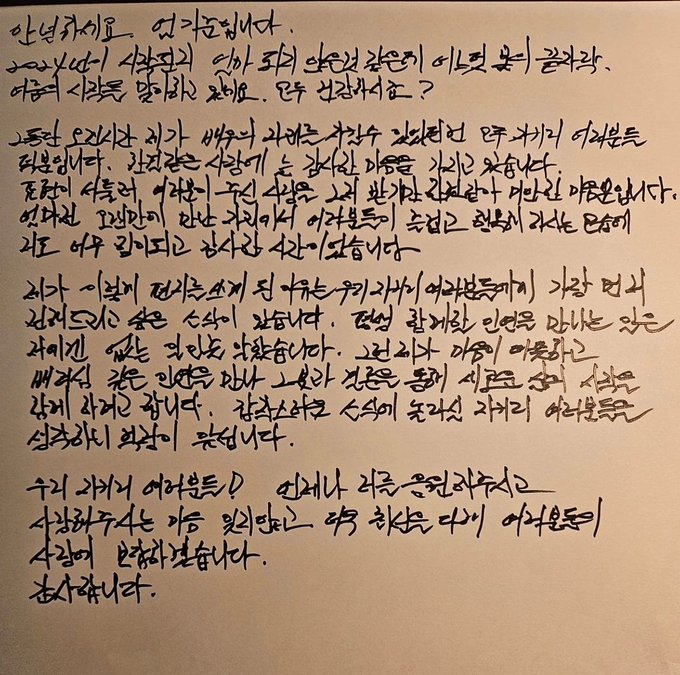 안녕하세요. 엄기준입니다.
2024년이 시작된지 얼마 되지 않은것 같은데 어느덧 봄의 끝자락.
여름의 시작을 맞이하고 있네요. 모두 건강하시죠?
그동안 오랜시간 제가 배우의 자리를 지킬수 있었던건 모두 지키리 여러분들
덕분입니다. 한결같은 사랑에 늘 감사한 마음을 가지고 있습니다.
표현이 서툴러 여러분이 주신 사랑을 그저 받기만 한것같아 미안한 마음뿐입니다.
얼마전 오랜만에 만난 자리에서 여러분들이 즐겁고 행복해 하시는 모습에
저도 너무 힘이되고 감사한 시간이었습니다
제가 이렇게 편지를 쓰게 된 이유는 우리 지키리 여러분들에게 가장 먼저
전해드리고 싶은 소식이 있습니다. 평생 함께할 인연을 만나는 일은
저에겐 없는 일인줄 알았습니다. 그런 제가 마음이 따뜻하고
배려심 깊은 인연을 만나 그분과 결혼을 통해 새로운 삶의 시작을
함께 하려고 합니다. 갑작스러운 소식에 놀라실 지키리 여러분들을
생각하니 걱정이 앞섭니다.
우리 지키리 여러분들! 언제나 저를 응원해주시고
사랑해주시는 마음 잊지않고 더욱 최선을 다해 여러분들의
사랑에 보답하겠습니다.
감사합니다.